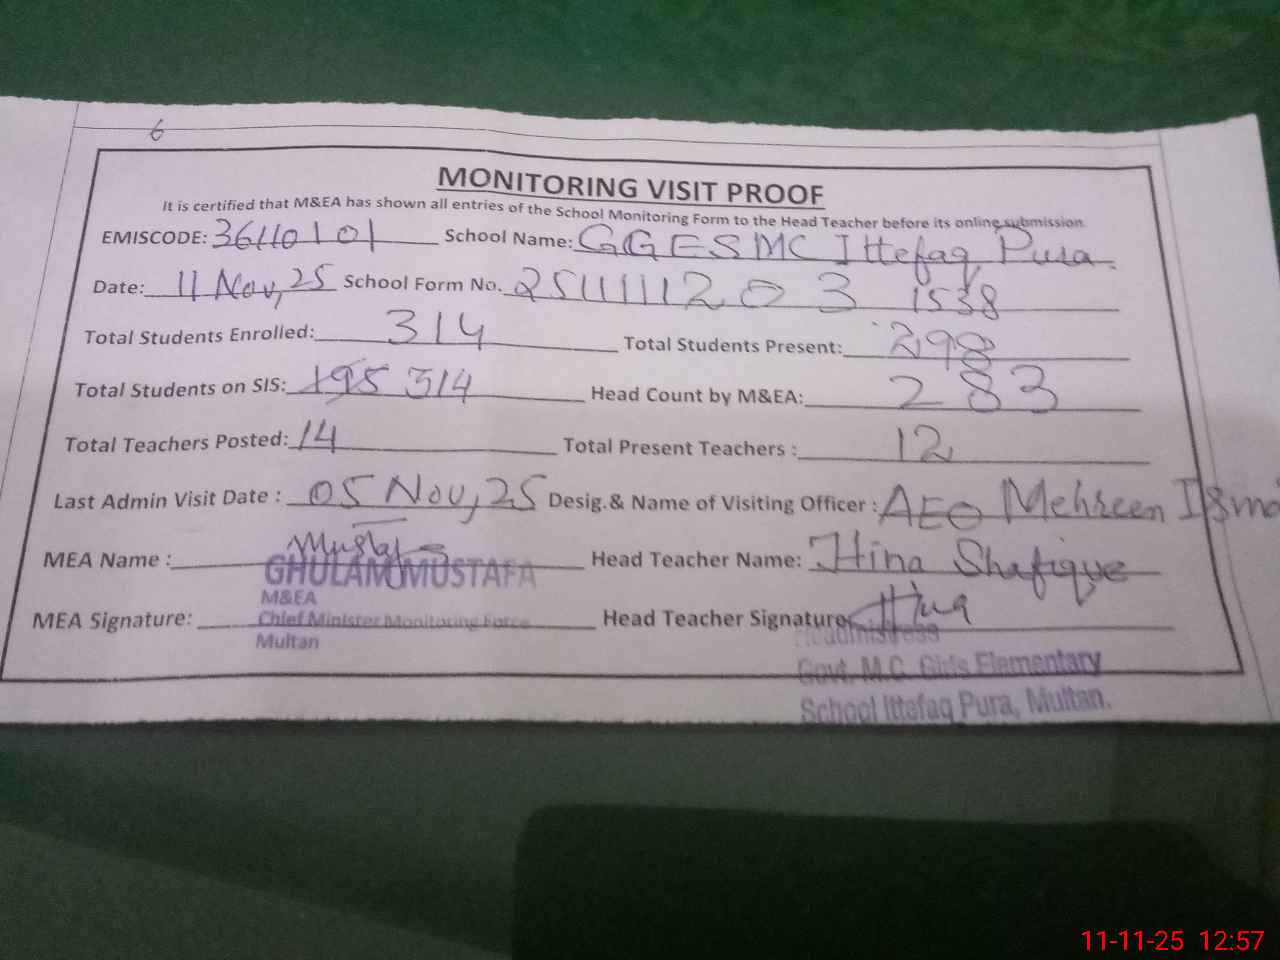 6
MONITORING VISIT PROOF
It is certified that M&EA has shown all entries of the School Monitoring Form to the Head Teacher before its online submission.
EMISCODE: 36110101 School Name: GGESMC Ittefaq Pura.
Date: 11 Nov, 25 School Form No. 251111120 3 1538
Total Students Enrolled: 314 Total Students Present: 298
Total Students on SIS: 195 314 Head Count by M&EA: 283
Total Teachers Posted: 14 Total Present Teachers : 12
Last Admin Visit Date : 05 Nov, 25 Desig.& Name of Visiting Officer : AEO Mehreen
MEA Name : GHULAM MUSTAFA Head Teacher Name: Hina Shafique
M&EA
MEA Signature: Chief Minister Monitoring Force Head Teacher Signature Hina
Multan
Headmistress
Govt. M.C. Girls Elementary
School Ittefaq Pura, Multan.
11-11-25 12:57